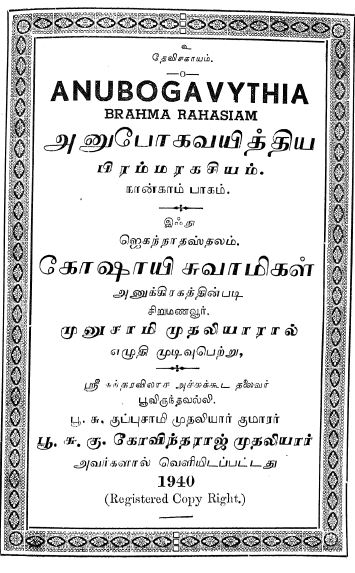 உ
தேவிசகாயம்.
ANUBOGAVYTHIA
BRAHMA RAHASIAM
அனுபோகவயித்திய
பிரம்மரகசியம்.
நான்காம் பாகம்.
இஃது
ஜெகந்நாதஸ்தலம்.
கோஷாயி சுவாமிகள்
அனுக்கிரகத்தின்படி
சிறுமணவூர்.
முனுசாமி முதலியாரால்
எழுதி முடிவுபெற்று,
ஸ்ரீ சுந்தரவிலாச அச்சுக்கூட தலைவர்
பூவிருந்தவல்லி.
பூ. சு. குப்புசாமி முதலியார் குமாரர்
பூ. சு. கு. கோவிந்தராஜ் முதலியார்
அவர்களால் வெளியிடப்பட்டது
1940
(Registered Copy Right.)